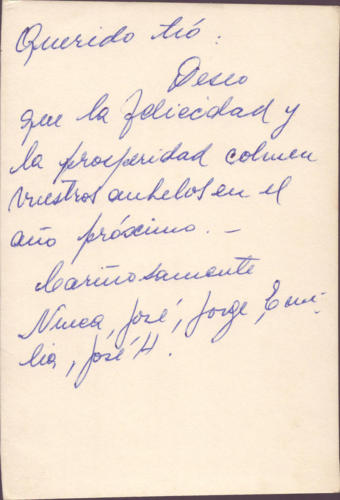 Querido tió.
Deseo
que la felicidad y
la prosperidad colmen
vuestros anhelos en el
año próximo. —
Cariñosamente
Ninca, José, Jorge, Emi-
lia, José H.